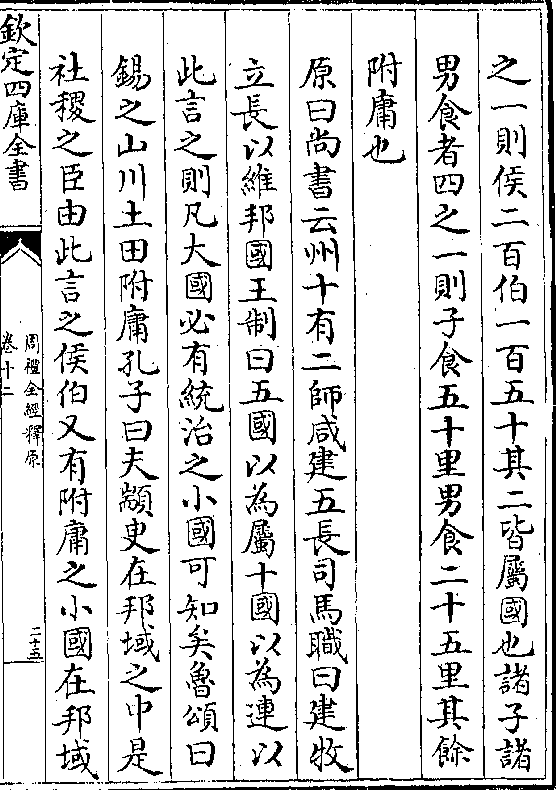 之一則侯二百伯一百五十其二皆屬國也諸子諸
男食者四之一則子食五十里男食二十五里其餘
附庸也
原曰尚書云州十有二師咸建五長司馬職曰建牧
立長以維邦國王制曰五國以為屬十國以為連以
此言之則凡大國必有統治之小國可知矣魯頌曰
錫之山川土田附庸孔子曰夫顓臾在邦域之中是
社稷之臣由此言之侯伯又有附庸之小國在邦域
欽定四庫全書
周禮全經釋原
卷十二
二十五